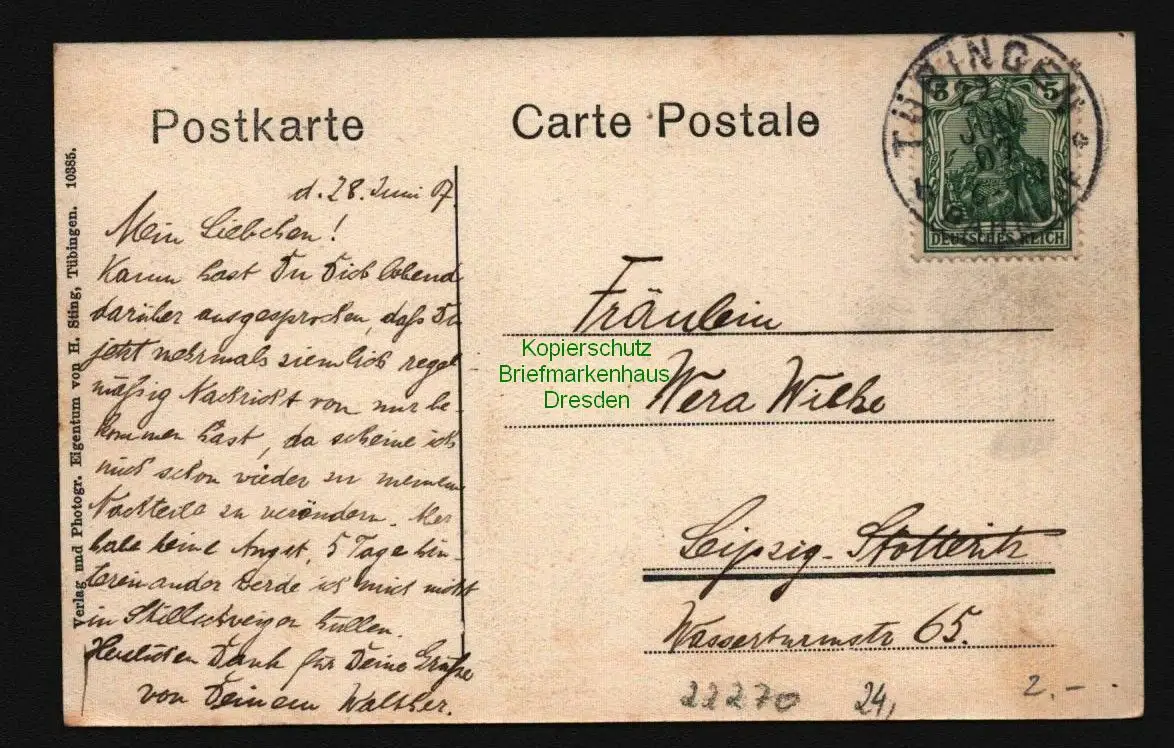 Postkarte
Carte Postale
TÜBINGEN
JUN
07
5
5
DEUTSCHES REICH
Verlag und Photogr. Eigentum von H. Sting, Tübingen. 10385.
d. 28. Juni 07
Mein Liebchen!
Kaum hast Du Dich lobend
darüber ausgesprochen, daß Du
jetzt mehrmals ziemlich regel-
mäßig Nachricht von mir be-
kommen hast, da scheine ich
mich schon wieder zu meinem
Nachteile zu verändern. Aber
habe keine Angst, 5 Tage hin-
tereinander werde ich mich nicht
in Stillschweigen hüllen.
Herzlichen Dank für Deine Grüße
von Deinem Walther.
Fräulein
Wera Wilke
Leipzig-Stötteritz
Wasserturmstr 65.
Kopierschutz
Briefmarkenhaus
Dresden
22270
24,
2.-